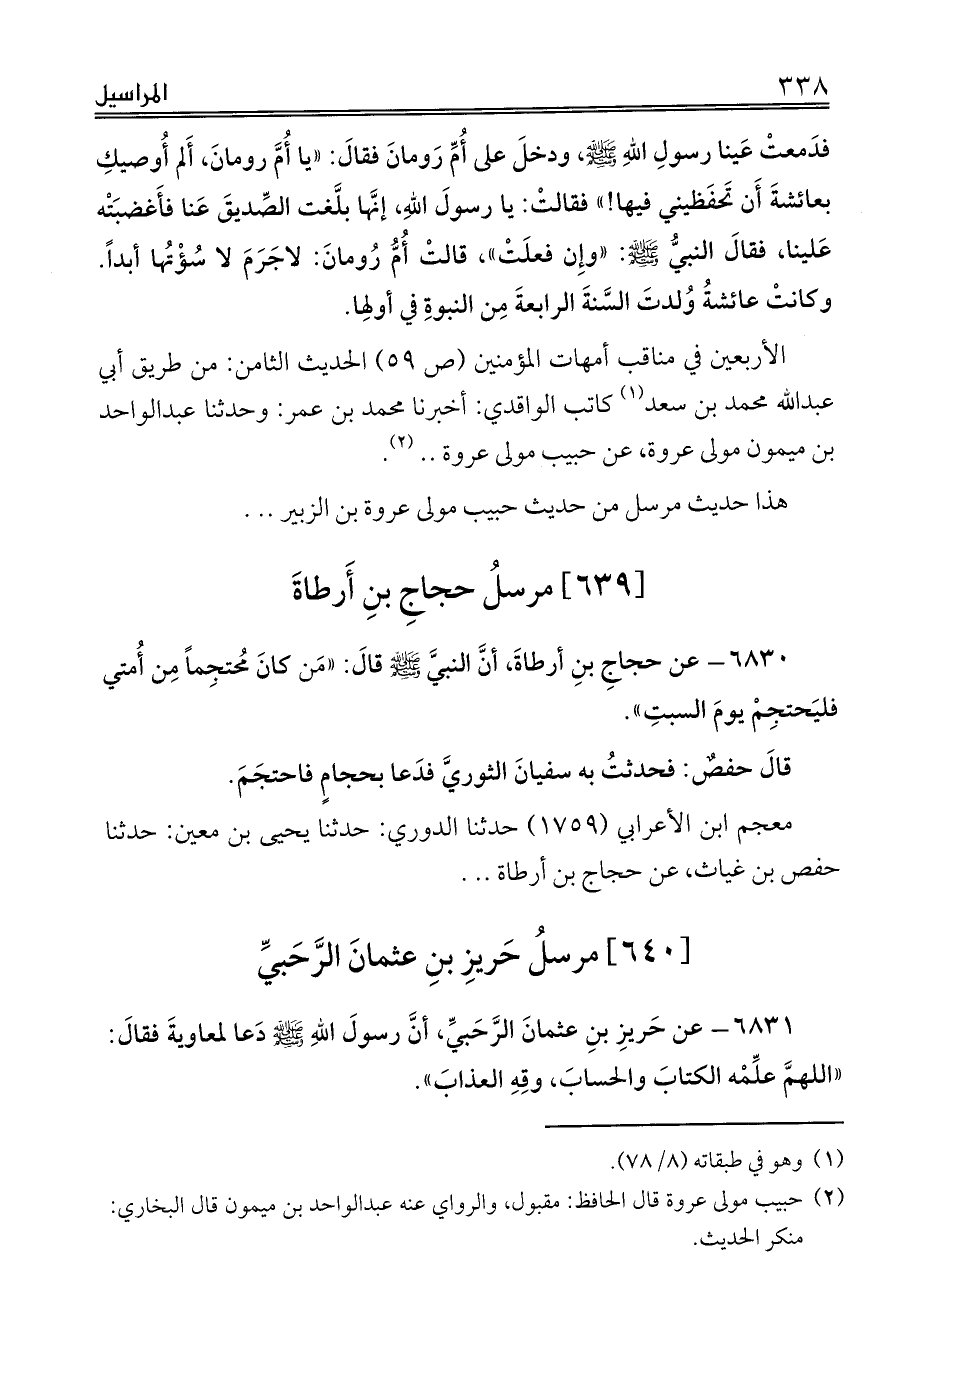 ٣٣٨
المراسيل
فدَمعتْ عَينا رسولِ اللهِ ﷺ، ودخلَ على أُمِّ رَومانَ فقالَ: «يا أُمَّ رومانَ، ألم أُوصيكِ
بعائشةَ أَن تَحفَظيني فيها!» فقالتْ: يا رسولَ اللهِ، إنَّها بلَّغت الصِّديقَ عَنا فأَغضبَتْه
عَلينا، فقالَ النبيُّ ﷺ: «وإن فعلَتْ»، قالتْ أُمُّ رُومانَ: لاجَرَمَ لا سُؤْتُها أبداً.
وكانتْ عائشةُ وُلدتَ السَّنةَ الرابعةَ مِن النبوةِ في أولِها.
الأربعين في مناقب أمهات المؤمنين (ص ٥٩) الحديث الثامن: من طريق أبي
عبدالله محمد بن سعد(١) كاتب الواقدي: أخبرنا محمد بن عمر: وحدثنا عبدالواحد
بن ميمون مولى عروة، عن حبيب مولى عروة .. (٢).
هذا حديث مرسل من حديث حبيب مولى عروة بن الزبير ...
[٦٣٩] مرسلُ حجاجِ بنِ أَرطاةَ
٦٨٣٠- عن حجاجِ بنِ أرطاةَ، أنَّ النبيَّ ﷺ قالَ: «مَن كانَ مُحتجِماً مِن أُمتي
فليَحتجِمْ يومَ السبتِ».
قالَ حفصٌ: فحدثتُ به سفيانَ الثوريَّ فدَعا بحجامٍ فاحتجَمَ.
معجم ابن الأعرابي (١٧٥٩) حدثنا الدوري: حدثنا يحيى بن معين: حدثنا
حفص بن غياث، عن حجاج بن أرطاة ...
[٦٤٠] مرسلُ حَريزِ بنِ عثمانَ الرَّحَبيِّ
٦٨٣١- عن حَريزِ بنِ عثمانَ الرَّحَبيِّ، أنَّ رسولَ اللهِ ﷺ دَعا لمعاويةَ فقالَ:
«اللهمَّ علِّمْه الكتابَ والحسابَ، وقِهِ العذابَ».
(١) وهو في طبقاته (٨/ ٧٨).
(٢) حبيب مولى عروة قال الحافظ: مقبول، والرواي عنه عبدالواحد بن ميمون قال البخاري:
منكر الحديث.